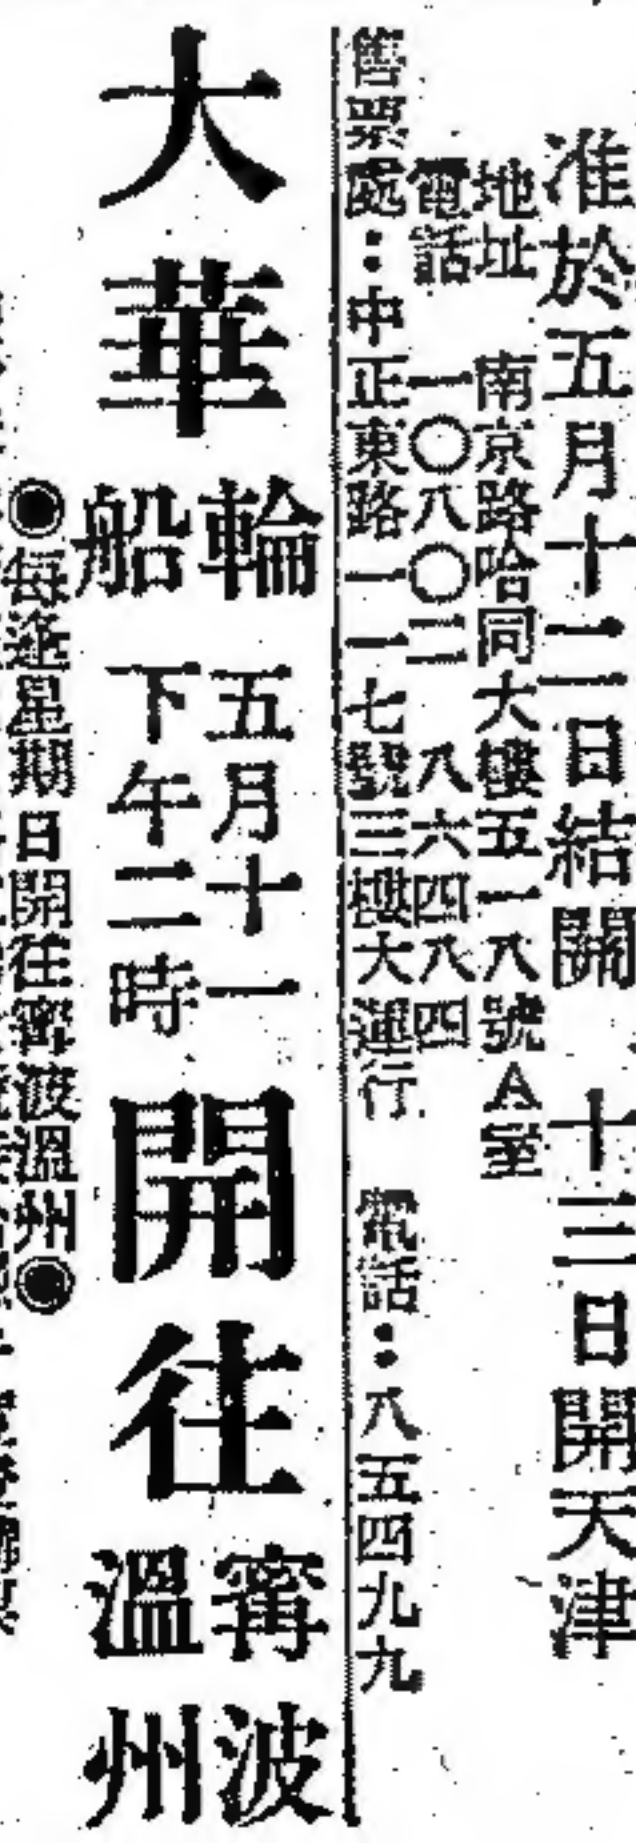 准於五月十二日結關　十三日開天津
地址　南京路哈同大樓五一八號A室
電話　一〇八〇二　八六四八四
售票處：中正東路一一七號三樓大運行　電話：八五四九九
大華輪船 五月十一下午二時 開往 甯波溫州
◉每逢星期日開往甯波溫州◉